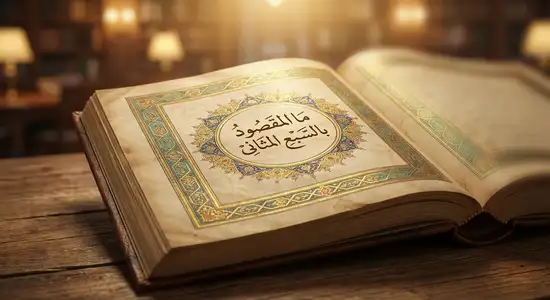 مَا المَقصُودُ
بِالسَّبْعِ المَثَانِي